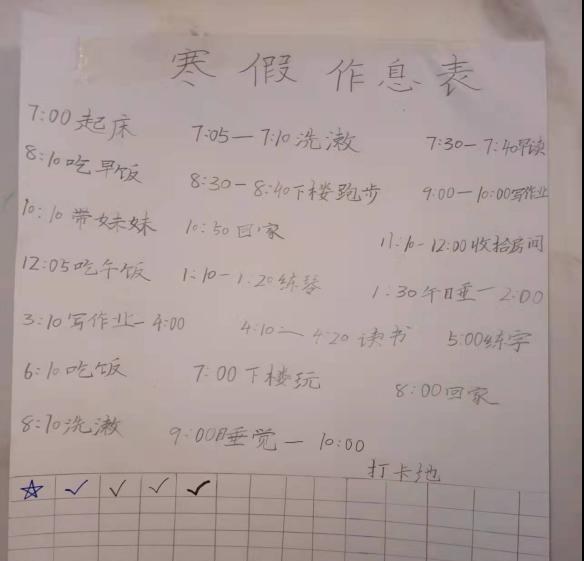 寒假作息表
7:00起床 7:05—7:10洗漱 7:30—7:40早读
8:10吃早饭 8:30-8:40下楼跑步 9:00—10:00写作业
10:10带妹妹 10:50回家 11:10-12:00收拾房间
12:05吃午饭 1:10-1:20练琴 1:30午睡—2:00
3:10写作业—4:00 4:10—4:20读书 5:00练字
6:10吃饭 7:00下楼玩 8:00回家
8:10洗漱 9:00睡觉—10:00
打卡地